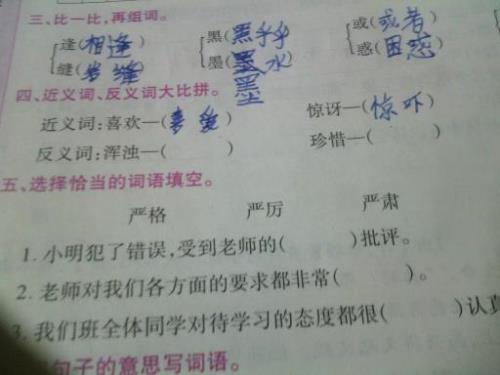 三、比一比,再组词。
逢(相逢) 黑(黑乎乎) 或(或者)
缝() 墨(墨水) 惑(困惑)
墨
四、近义词、反义词大比拼。
近义词:喜欢—(喜爱) 惊讶—(惊吓)
反义词:浑浊—( ) 珍惜—( )
五、选择恰当的词语填空。
严格 严厉 严肃
1. 小明犯了错误,受到老师的( )批评。
2. 老师对我们各方面的要求都非常( )。
3. 我们班全体同学对待学习的态度都很( )认真
句子的意思写词语。